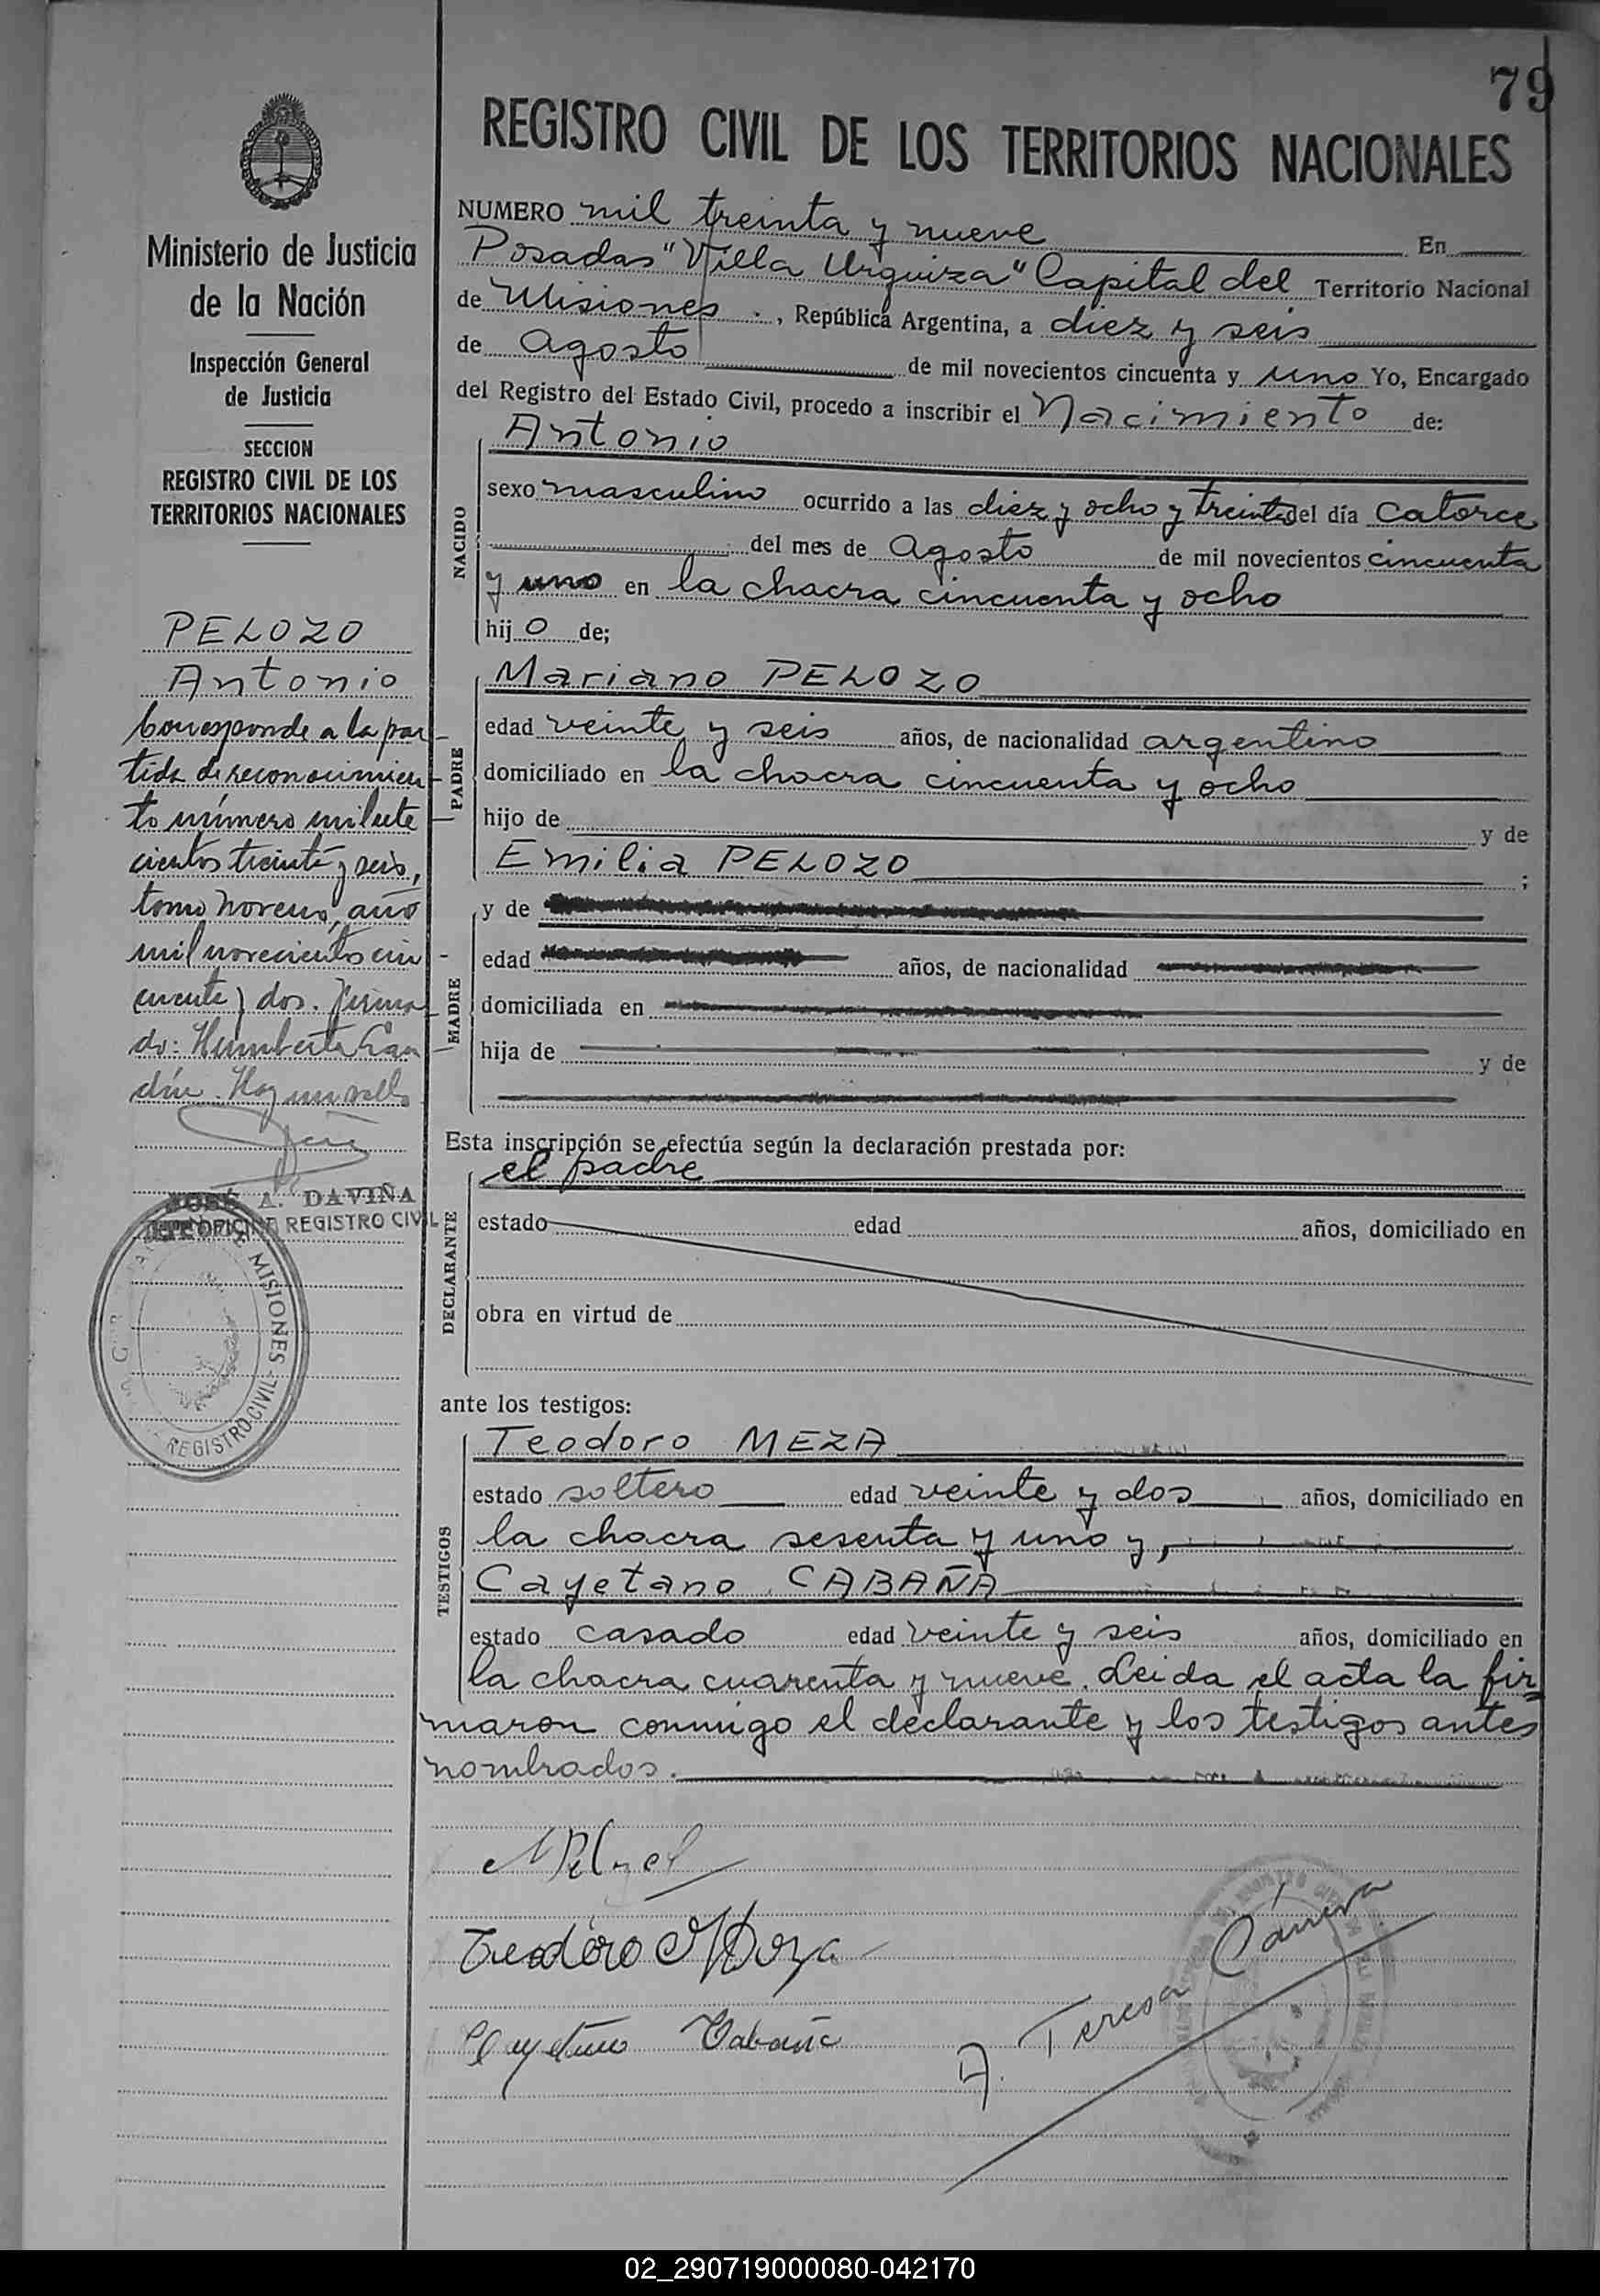 79
REGISTRO CIVIL DE LOS TERRITORIOS NACIONALES
Ministerio de Justicia
de la Nación
Inspección General
de Justicia
SECCION
REGISTRO CIVIL DE LOS
TERRITORIOS NACIONALES
PELOZO
Antonio
Corresponde a la par-
tida de reconocimien-
to número mil sete
cientos treinta y seis,
tomo noveno, año
mil novecientos cin-
cuenta y dos. Firma-
do: Humberto Gan-
día. Hay un sello
JOSÉ A. DAVIÑA
OFICINA REGISTRO CIVIL
MISIONES - REGISTRO CIVIL
NUMERO mil treinta y nueve En
Posadas "Villa Urquiza" Capital del Territorio Nacional
de Misiones . , República Argentina, a diez y seis
de Agosto de mil novecientos cincuenta y uno Yo, Encargado
del Registro del Estado Civil, procedo a inscribir el Nacimiento de:
NACIDO
Antonio
sexo masculino ocurrido a las diez y ocho y treinta del día catorce
del mes de Agosto de mil novecientos cincuenta
y uno en la chacra cincuenta y ocho
hij o de;
PADRE
Mariano PELOZO
edad veinte y seis años, de nacionalidad argentino
domiciliado en la chacra cincuenta y ocho
hijo de y de
Emilia PELOZO ;
MADRE
y de
edad años, de nacionalidad
domiciliada en
hija de y de
Esta inscripción se efectúa según la declaración prestada por:
DECLARANTE
el padre
estado edad años, domiciliado en
obra en virtud de
ante los testigos:
TESTIGOS
Teodoro MEZA
estado soltero edad veinte y dos años, domiciliado en
la chacra sesenta y uno y,
Cayetano CABAÑA
estado casado edad veinte y seis años, domiciliado en
la chacra cuarenta y nueve. Leida el acta la fir=
maron conmigo el declarante y los testigos antes
nombrados.
Teodoro Meza
Cayetano Cabaña
A. Teresa
02_290719000080-042170